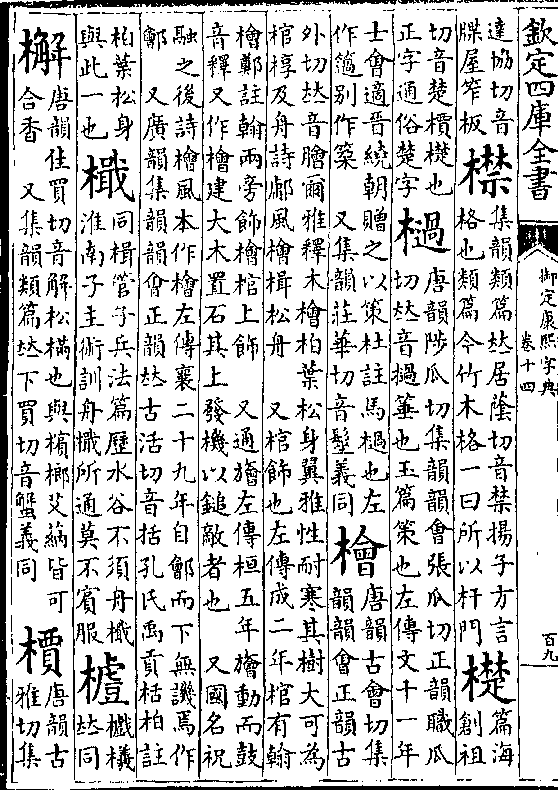 欽定四庫全書
御定康熙字典
卷十四
百九
達協切音
牒屋笮板
㯲
集韻類篇𠀤居蔭切音禁揚子方言
格也類篇今竹木格一曰所以杆門
檚
篇海
創祖
切音楚檟檚也
正字通俗楚字
檛
唐韻陟瓜切集韻韻會張瓜切正韻職瓜
切𠀤音撾箠也玉篇策也左傳文十一年
士會適晉繞朝贈之以策杜註馬檛也左
作簻别作築 又集韻莊華切音髽義同
檜
唐韻古會切集
韻韻會正韻古
外切𠀤音膾爾雅釋木檜柏葉松身翼雅性耐寒其樹大可為
棺椁及舟詩鄘風檜楫松舟 又棺飾也左傳成二年棺有翰
檜鄭註翰兩旁飾檜棺上飾 又通旝左傳桓五年旝動而鼓
音釋又作檜建大木置石其上發機以鎚敵者也 又國名祝
融之後詩檜風本作檜左傳襄二十九年自鄶而下無譏焉作
鄶 又廣韻集韻韻會正韻𠀤古活切音括孔氏禹貢栝柏註
柏葉松身
與此一也
檝
同楫管子兵法篇歷水谷不須舟檝
淮南子主術訓舟檝所通莫不賓服
𠀤同
檞
唐韻佳買切音解松樠也與檳榔艾蒳皆可
合香 又集韻類篇𠀤下買切音蟹義同
檟
唐韻古
雅切集